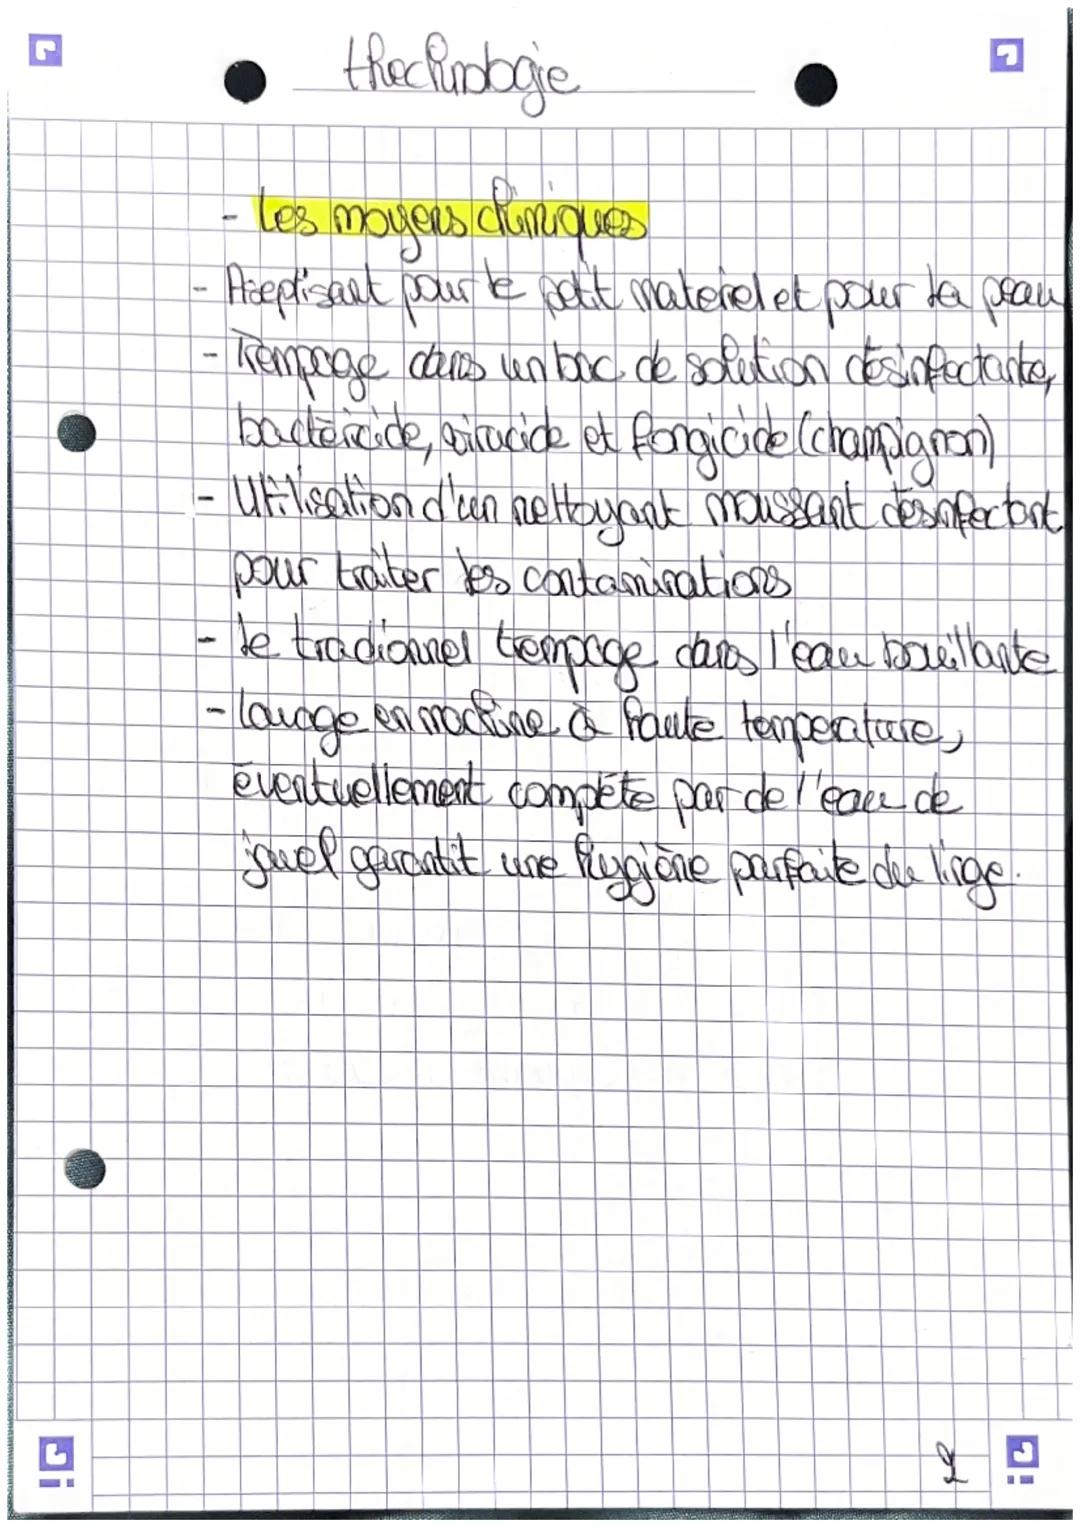 thechnologie
- Les moyens chimiques
- Aseptisant pour le petit materiel et pour la peau
- Trempage dans un bac de solution désinfectante,
bactéricide, viracide et fongicide (champignon)
- Utilisation d'un nettoyant moussant désinfectant
pour traiter les contaminations
- le tradionnel trempage dans l'eau bouillante
- lavage en machine à haute temperature,
éventuellement compété par de l'eau de
javel garantit une hygiène parfaite du linge.
2